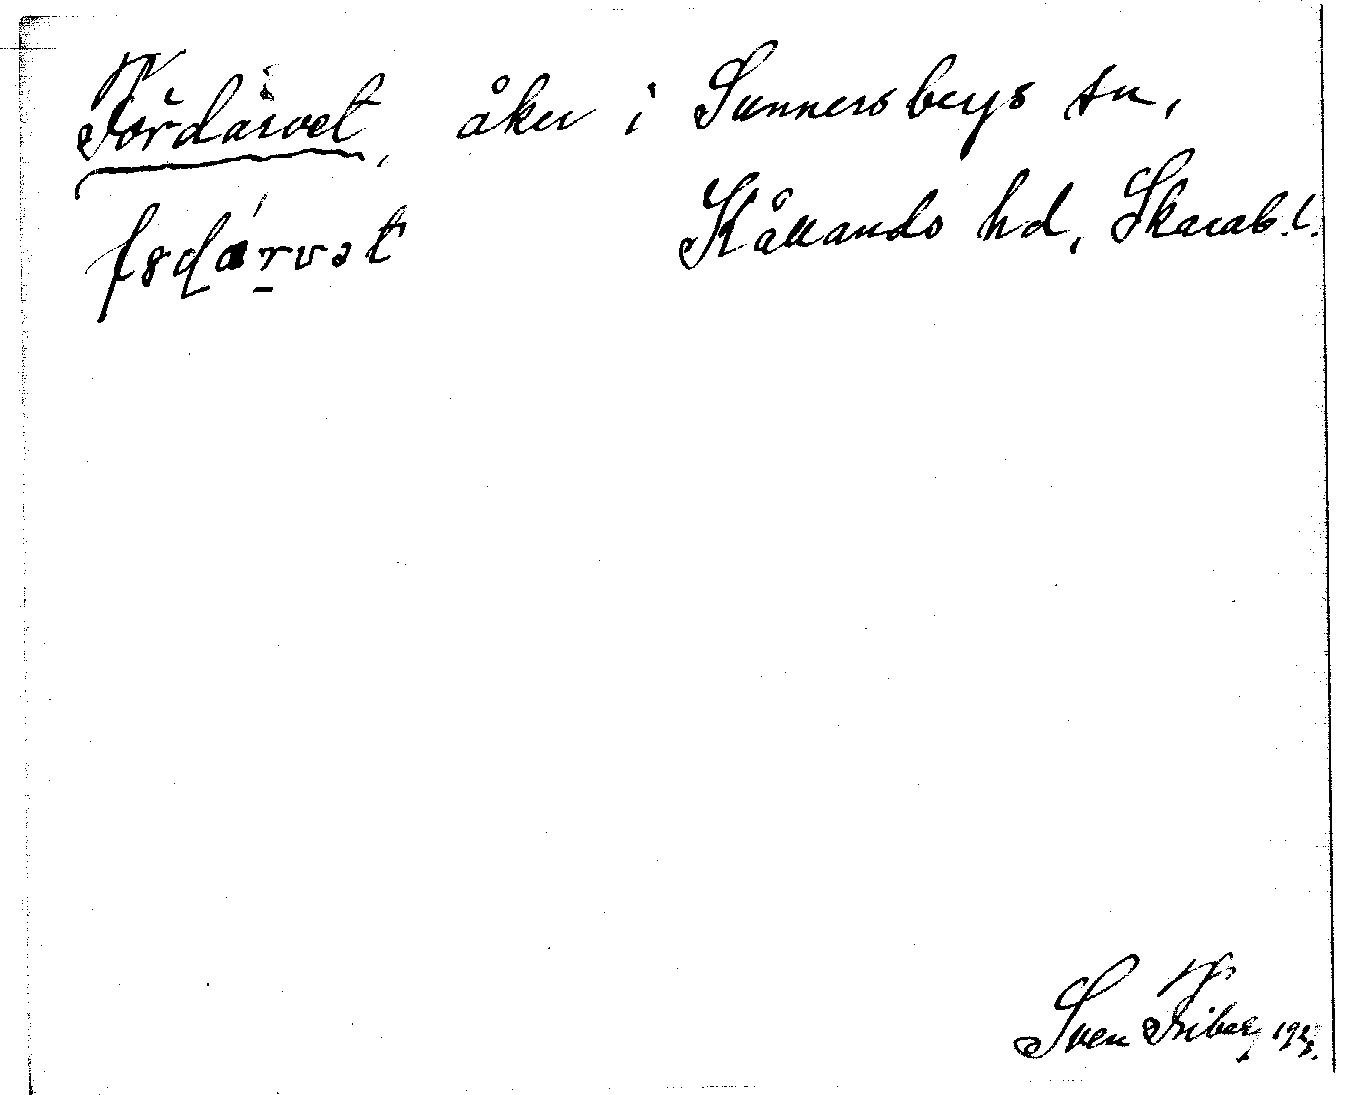 Fördärvet, åker i Sunnersbergs sn,
Kållands hd, Skarab. l.
Sven Friberg